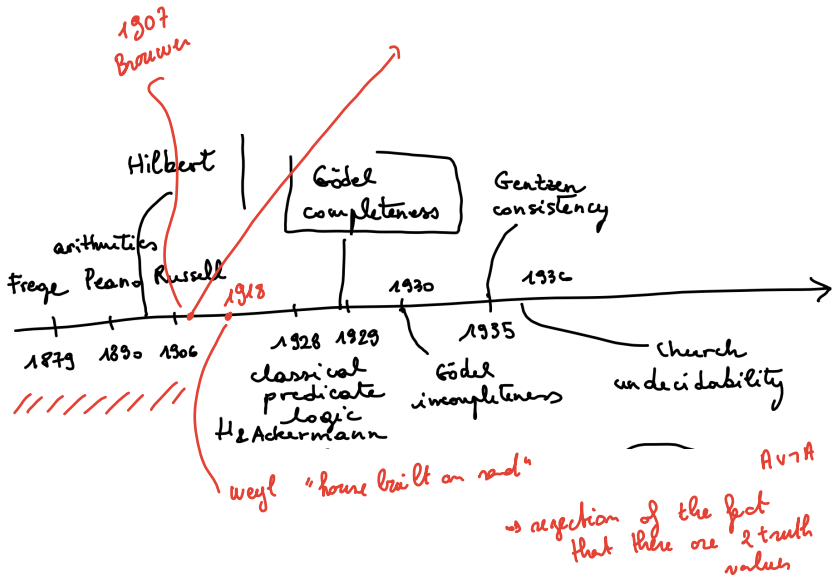 1907
Brouwer
Hilbert
Gödel
completeness
Gentzen
consistency
arithmetics
Frege Peano Russell
1918
1930
1936
1879 1890 1906
1928 1929
1935
classical
predicate
logic
H & Ackermann
Gödel
incompleteness
Church
undecidability
weyl "house built on sand"
A ∨ ¬A
⇝ rejection of the fact
that there are 2 truth
values